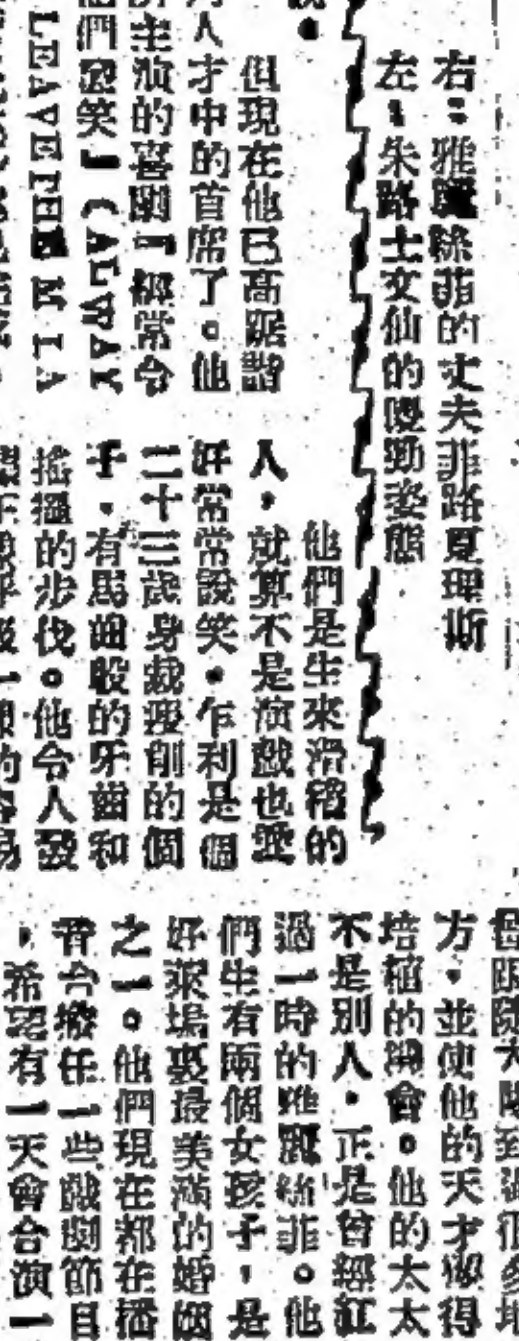 右：雅麗絲菲的丈夫菲路夏理斯
左：朱路士文仙的傻勁姿態
但現在他已高踞諧
人才中的首席了。他
所主演的喜劇「經常令
他們忍笑」(ALWAY
LEAVE THEM LA
他們是生來滑稽的
人，就算不是演戲也愛
好常常說笑。乍利是個
二十三歲身裁瘦削的個
子，有馬齒般的牙齒和
搖擺的步伐。他令人發
跟隨大隊到過很多地
方，並使他的天才獲得
培植的機會。他的太太
不是別人，正是曾經紅
過一時的雅麗絲菲。他
們生有兩個女孩子，是
好萊塢裏最美滿的婚姻
之一。他們現在都在播
音台擔任一些戲劇節目
，希望有一天會合演一